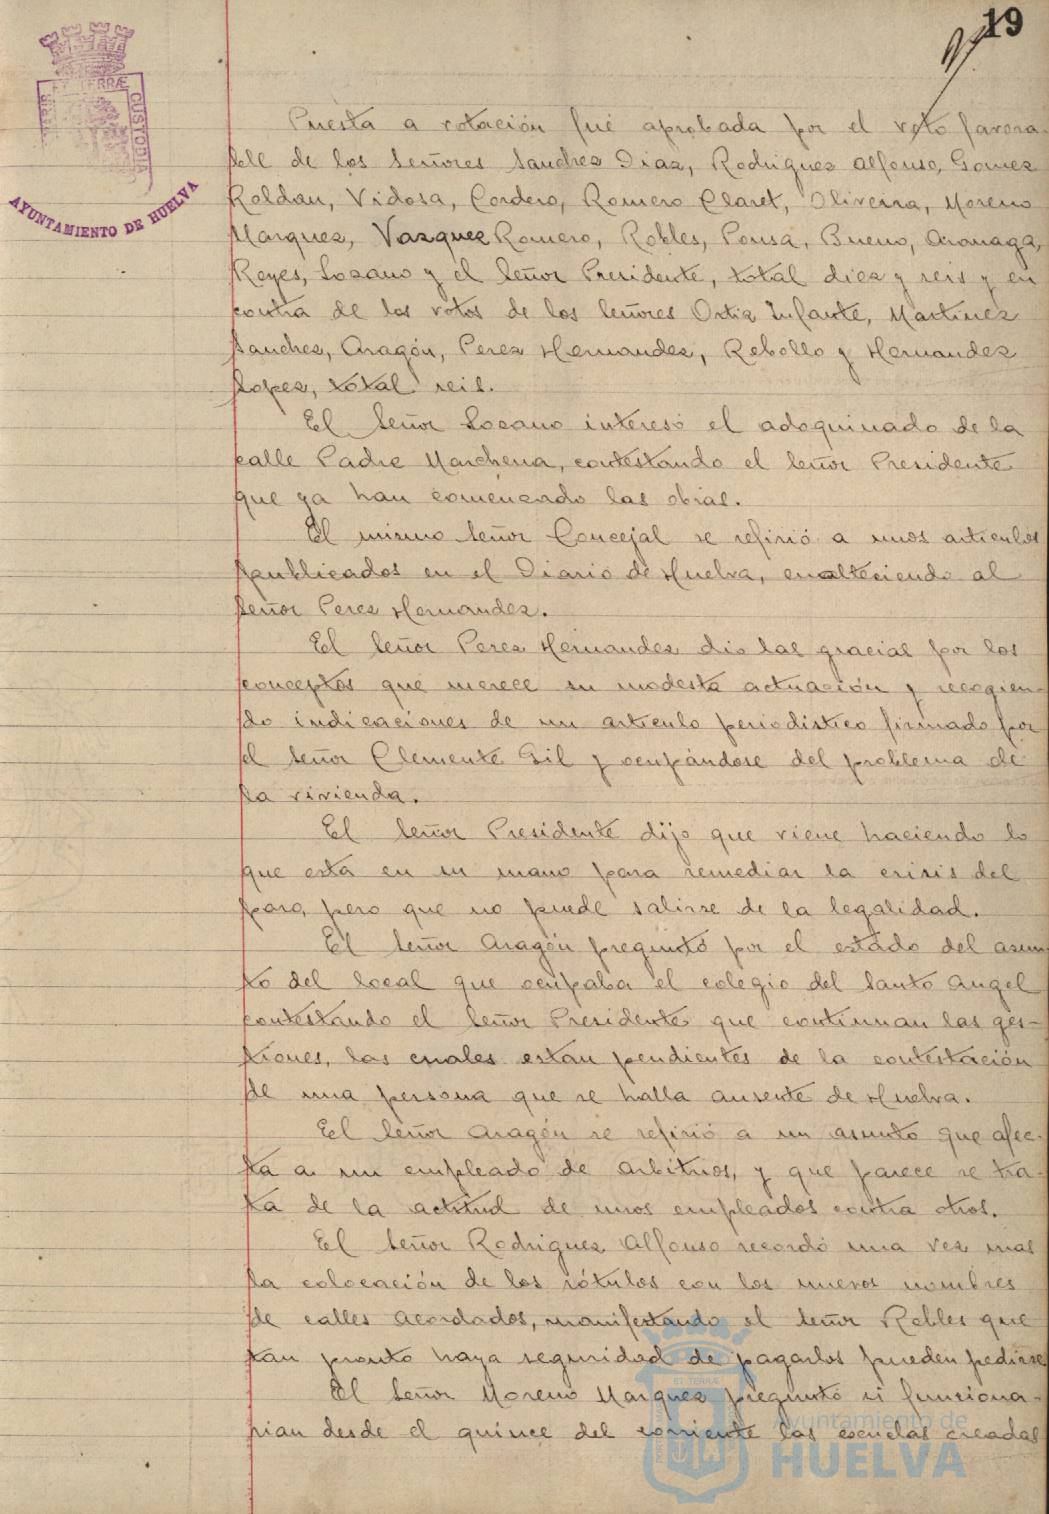 19
PORTUS MARIS ET TERRÆ CUSTODIA
AYUNTAMIENTO DE HUELVA
Puesta a votación fué aprobada por el voto favora-
ble de los Señores Sanchez Diaz, Rodriguez Alfonso, Gomez
Roldan, Vidosa, Cordero, Romero Claret, Oliveira, Moreno
Marquez, Vazquez Romero, Robles, Ponsa, Bueno, Aronaga,
Reyes, Lozano y el Señor Presidente, total diez y seis y en
contra de los votos de los Señores Ortiz Infante, Martinez
Sanchez, Aragón, Perez Hernandez, Rebollo y Hernandez
Lopez, total seis.
El Señor Lozano interesó el adoquinado de la
calle Padre Marchena, contestando el Señor Presidente
que ya han comenzado las obras.
El mismo Señor Concejal se refirió a unos articulos
publicados en el Diario de Huelva, enalteciendo al
Señor Perez Hernandez.
El Señor Perez Hernandez dio las gracias por los
conceptos que merece su modesta actuación y recogien-
do indicaciones de un articulo periodistico firmado por
el Señor Clemente Gil y ocupándose del problema de
la vivienda.
El Señor Presidente dijo que viene haciendo lo
que está en su mano para remediar la crisis del
paro, pero que no puede salirse de la legalidad.
El Señor Aragón preguntó por el estado del asun-
to del local que ocupaba el colegio del Santo Angel
contestando el Señor Presidente que continuan las ges-
tiones, las cuales estan pendientes de la contestación
de una persona que se halla ausente de Huelva.
El Señor Aragón se refirió a un asunto que afec-
ta a un empleado de arbitrios, y que parece se tra-
ta de la actitud de unos empleados contra otros.
El Señor Rodriguez Alfonso recordó una vez mas
la colocación de los rótulos con los nuevos nombres
de calles acordados, manifestando el Señor Robles que
tan pronto haya seguridad de pagarlos pueden pedirse
El Señor Moreno Marquez preguntó si funciona-
rian desde el quince del corriente las escuelas creadas
Ayuntamiento de
HUELVA